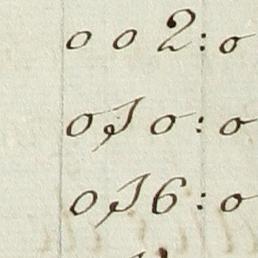 0 0 2:0
0 1 0:0
0 1 6:0